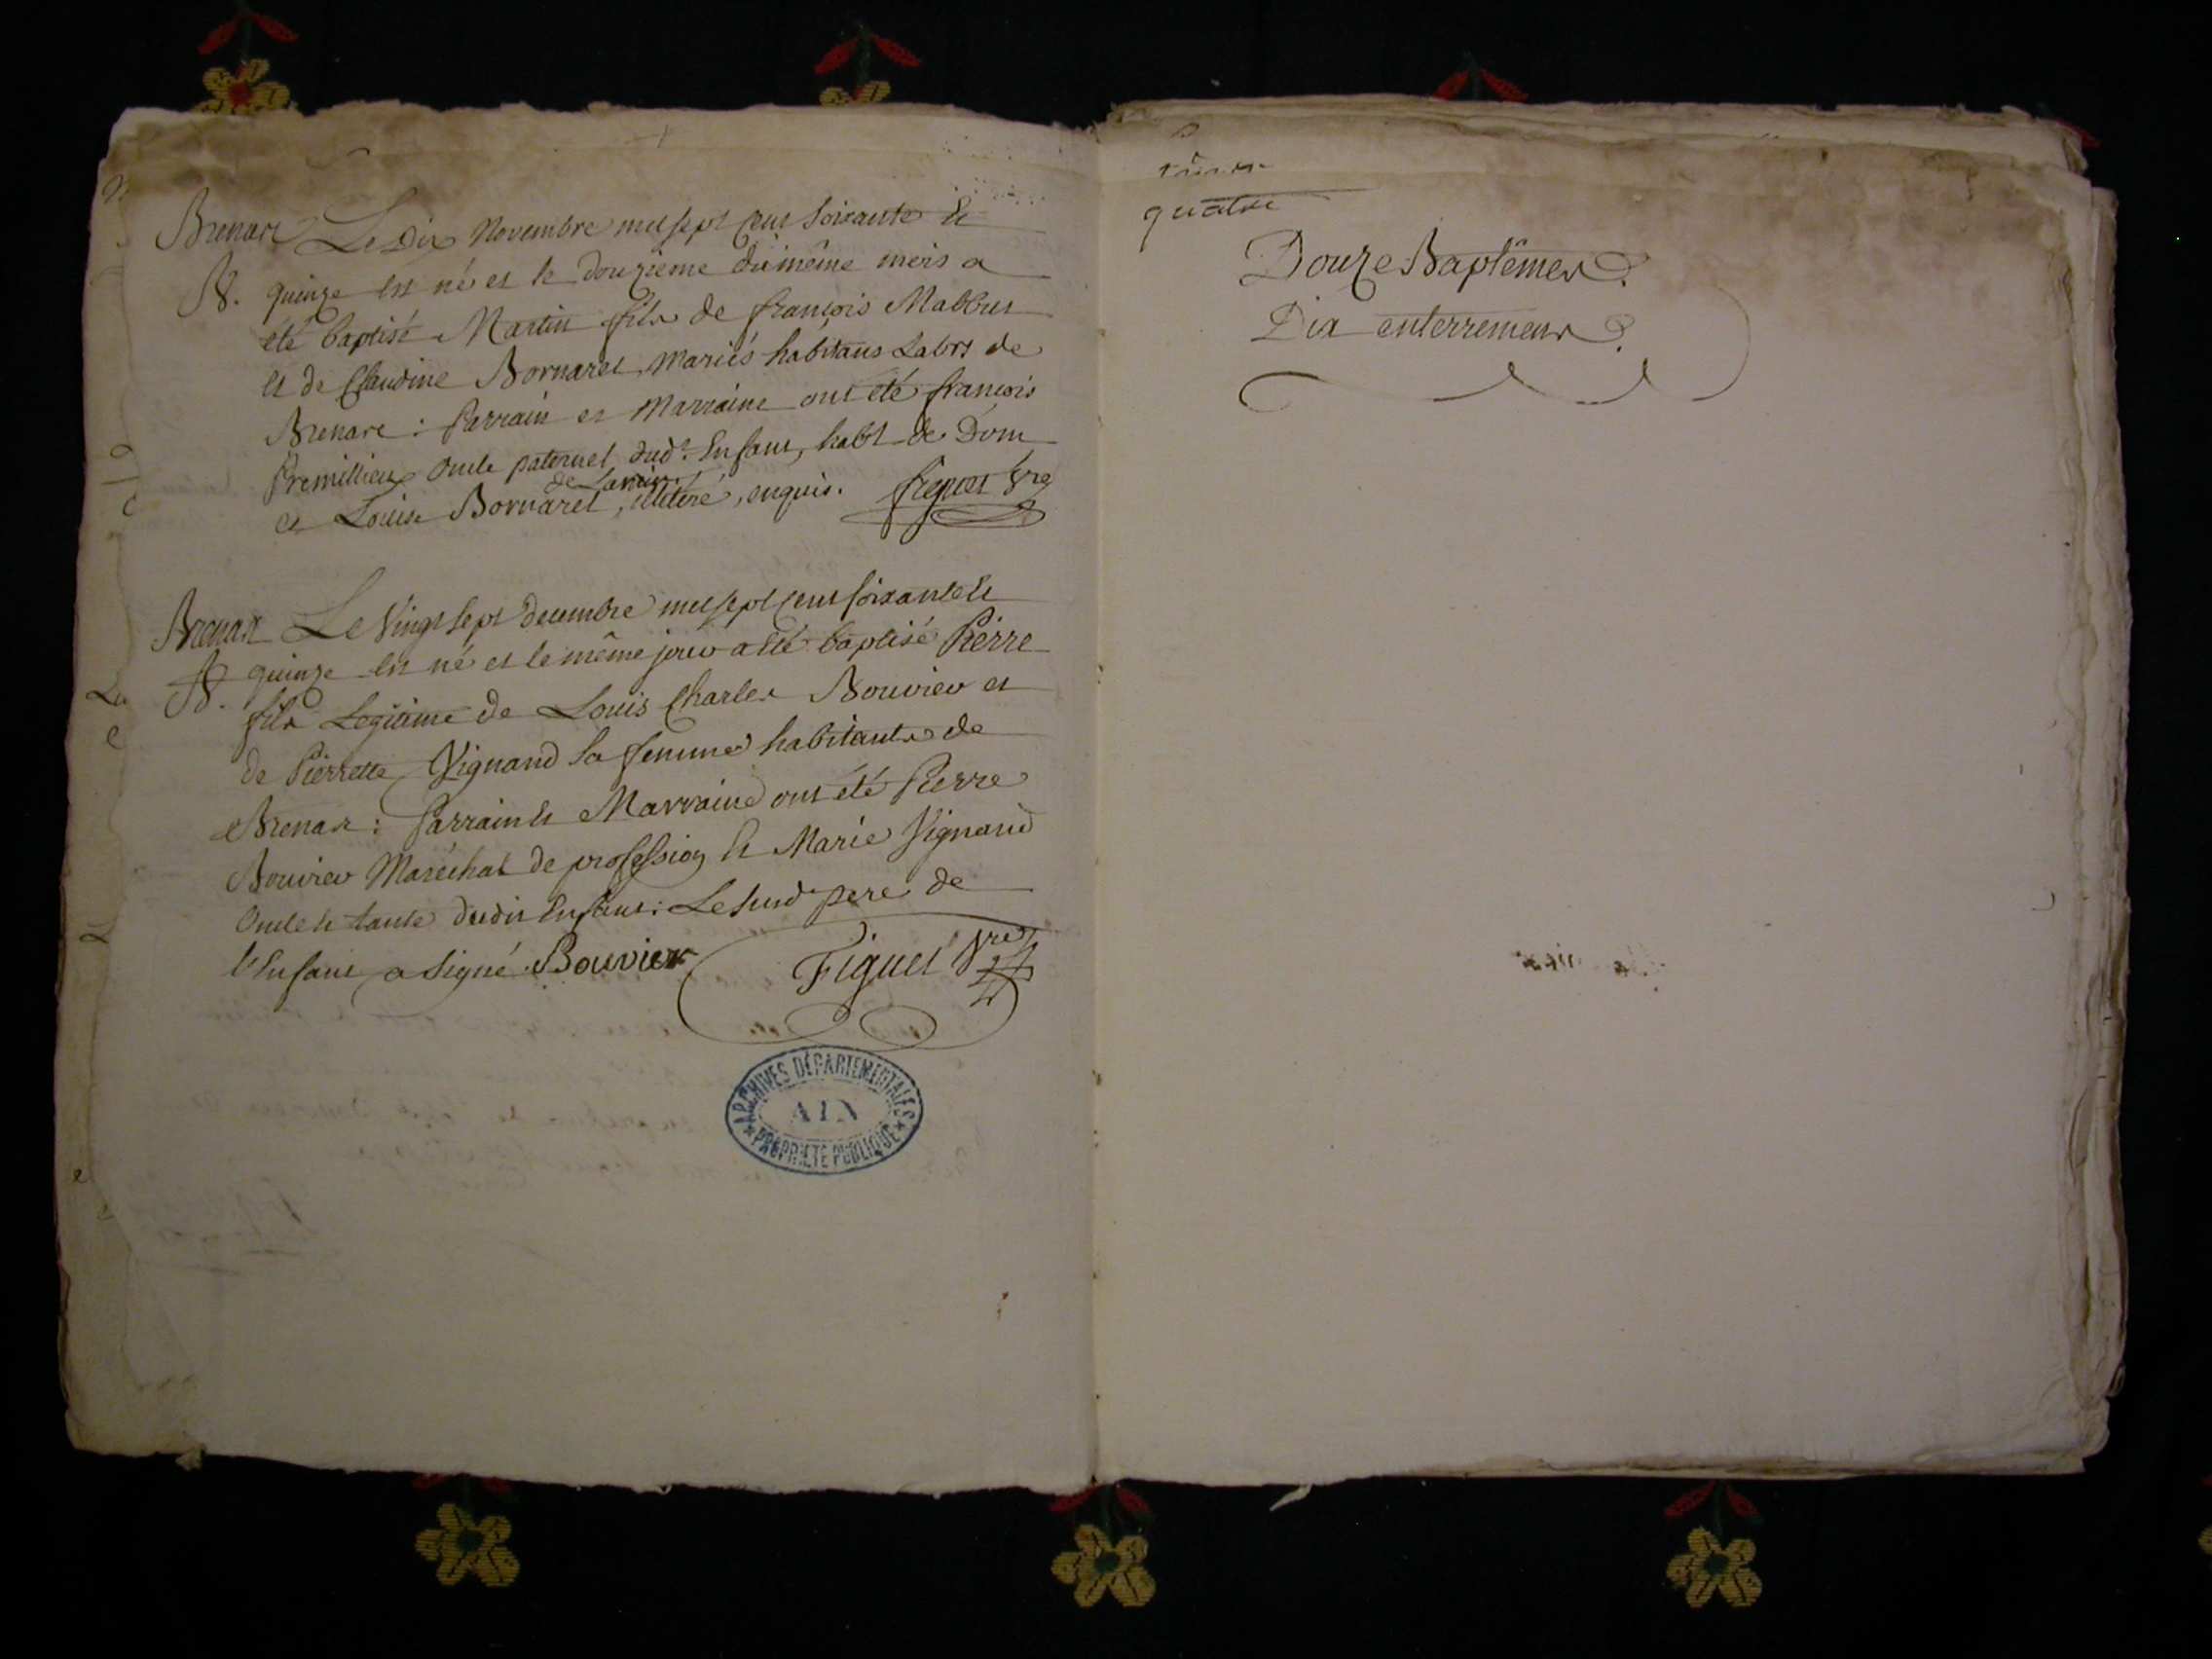 Brenaz Le Dix Novembre mil sept cent soixante et
B. quinze est né et le douzieme du même mois a
été baptisé Martin fils de françois Mabbut
et de Claudine Bornarel, mariés habitans Labrs de
Brenaz : Parrain et Marraine ont été françois
Premillieu oncle paternel dud. Enfant, habt de Dom
de Lavoin
et Louise Bornarel, illitéré, enquis. figuet vre
Brenaz Le vingt sept decembre mil sept cent soixante et
B. quinze est né et le même jour a été baptisé Pierre
fils Legitime de Louis Charles Bouvier et
de Pierrette Vignand sa femme habitants de
Brenaz : Parrain et Marraine ont été Pierre
Bouvier Maréchal de profession et Marie Vignand
Oncle et tante dudit Enfant : Le susd pere de
l'Enfant a signé. Bouvier Figuet vre
ARCHIVES DÉPARTEMENTALES
AIN
PROPRIÉTÉ PUBLIQUE
quatre
Douze Baptêmes
Dix enterremens